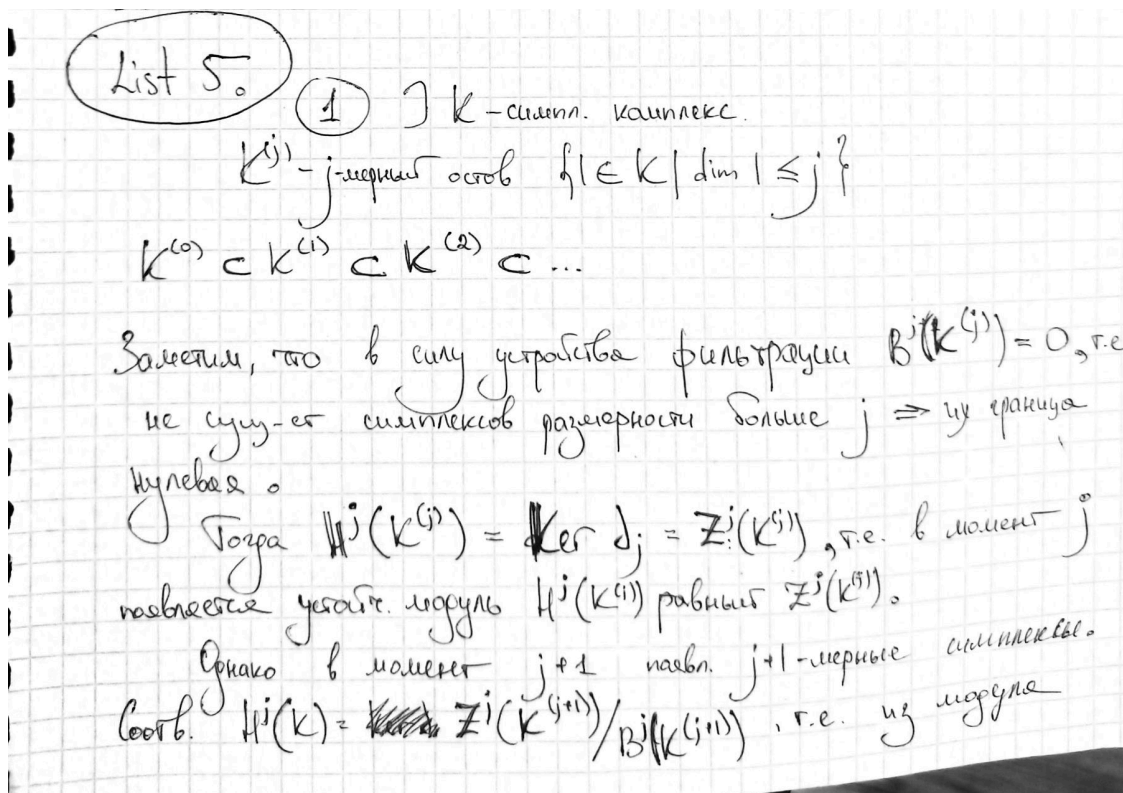 List 5.
1 ] K – симпл. комплекс.
K^(j) – j-мерный остов {I ∈ K | dim I ≤ j}
K^(0) ⊂ K^(1) ⊂ K^(2) ⊂ ...
Заметим, что в силу устройства фильтрации B^j(K^(j)) = 0, т.е
не сущ-ет симплексов размерности больше j ⇒ их граница
нулевая.
Тогда H^j(K^(j)) = Ker ∂_j = Z^j(K^(j)), т.е. в момент j
появляется устойч. модуль H^j(K^(j)) равный Z^j(K^(j)).
Однако в момент j+1 появл. j+1-мерные симплексы.
Соотв. H^j(K) = Z^j(K^(j+1))/B^j(K^(j+1)), т.е. из модуля